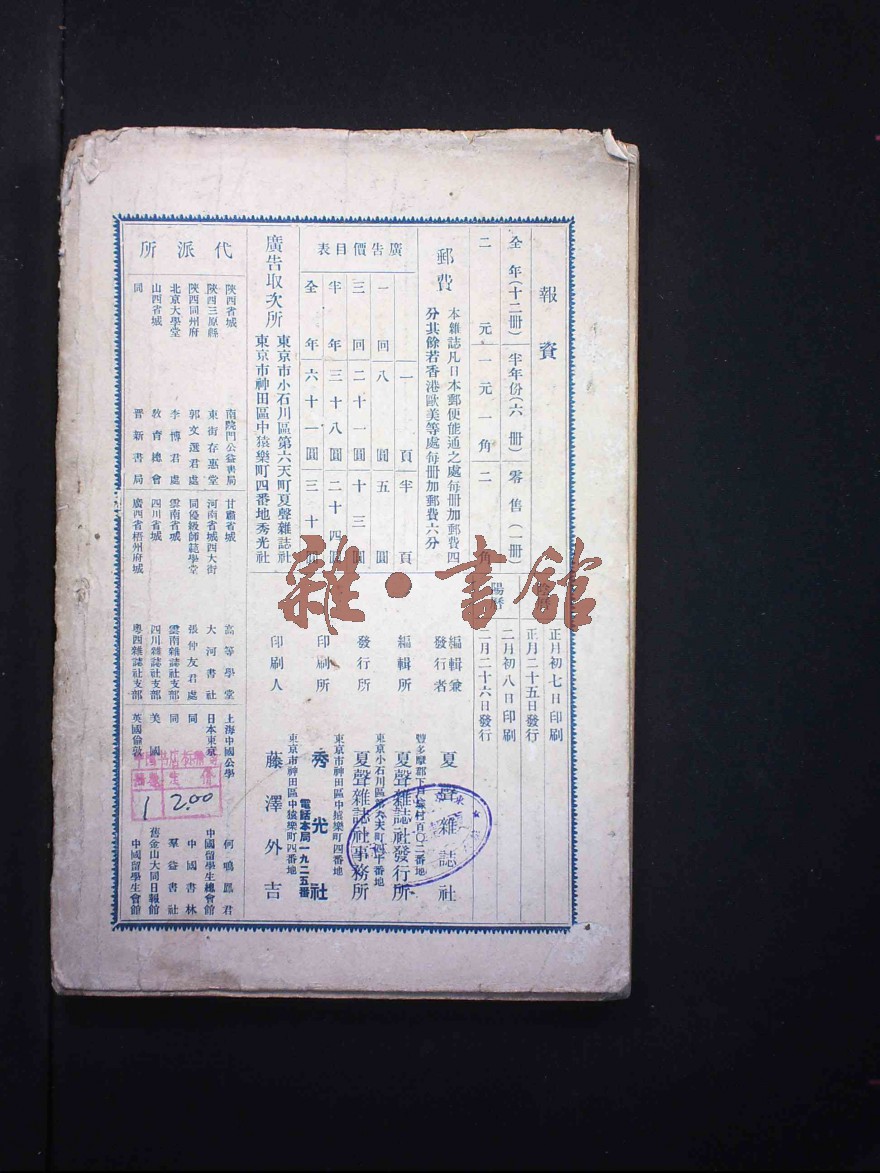 報資
全年(十二冊)
半年份(六冊)
零售(一冊)
二元
一元一角
二角
郵費
本雜誌凡日本郵便能通之處每冊加郵費四
分其餘若香港歐美等處每冊加郵費六分
廣告價目表
一頁
半頁
一回
八圓
五圓
三回
二十一圓
十三圓
半年
三十八圓
二十四圓
全年
六十一圓
三十圓
廣告取次所
東京市小石川區第六天町夏聲雜誌社
東京市神田區中猿樂町四番地秀光社
正月初七日印刷
正月二十五日發行
陽曆
二月初八日印刷
二月二十六日發行
編輯兼
發行者
豐多摩郡下
夏聲雜誌社
編輯所
東京小石川區第六天町四十番地
夏聲雜誌社發行所
發行所
東京市神田區中猿樂町四番地
夏聲雜誌社事務所
印刷所
秀光社
電話本局一九二五番
東京市神田區中猿樂町四番地
印刷人
藤澤外吉
代派所
陝西省城
南院門公益書局
陝西三原縣
東街存惠堂
陝西同州府
郭文選君處
北京大學堂
李博君處
山西省城
教育總會
同
晉新書局
甘肅省城
高等學堂
河南省城西大街
大河書社
同優級師範學堂
張仲友君處
雲南省城
雲南雜誌社支部
四川省城
四川雜誌社支部
廣西省梧州府城
粵西雜誌社支部
上海中國公學
何鳴鳳君
日本東京
中國留學生總會館
同
中國書林
同
羣益書社
美國
舊金山大同日報館
英國倫敦
中國留學生會館
1
2.00
雜·書館